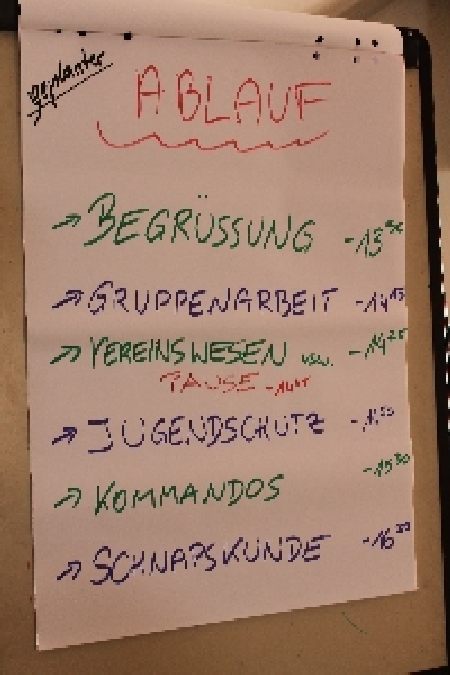 geplanter
ABLAUF
→ BEGRÜSSUNG
→ GRUPPENARBEIT -14¹⁵
→ VEREINSWESEN usw. -14³⁵
PAUSE -14⁴⁵
→ JUGENDSCHUTZ
→ KOMMANDOS -15³⁰
→ SCHNAPSKUNDE -16³⁰